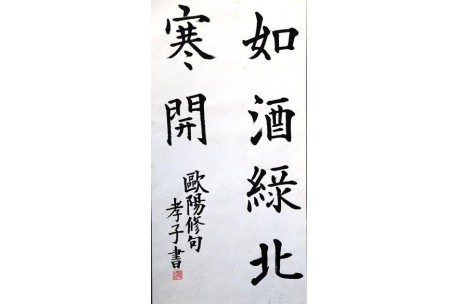 如酒綠北
寒開
歐陽修句
孝子書